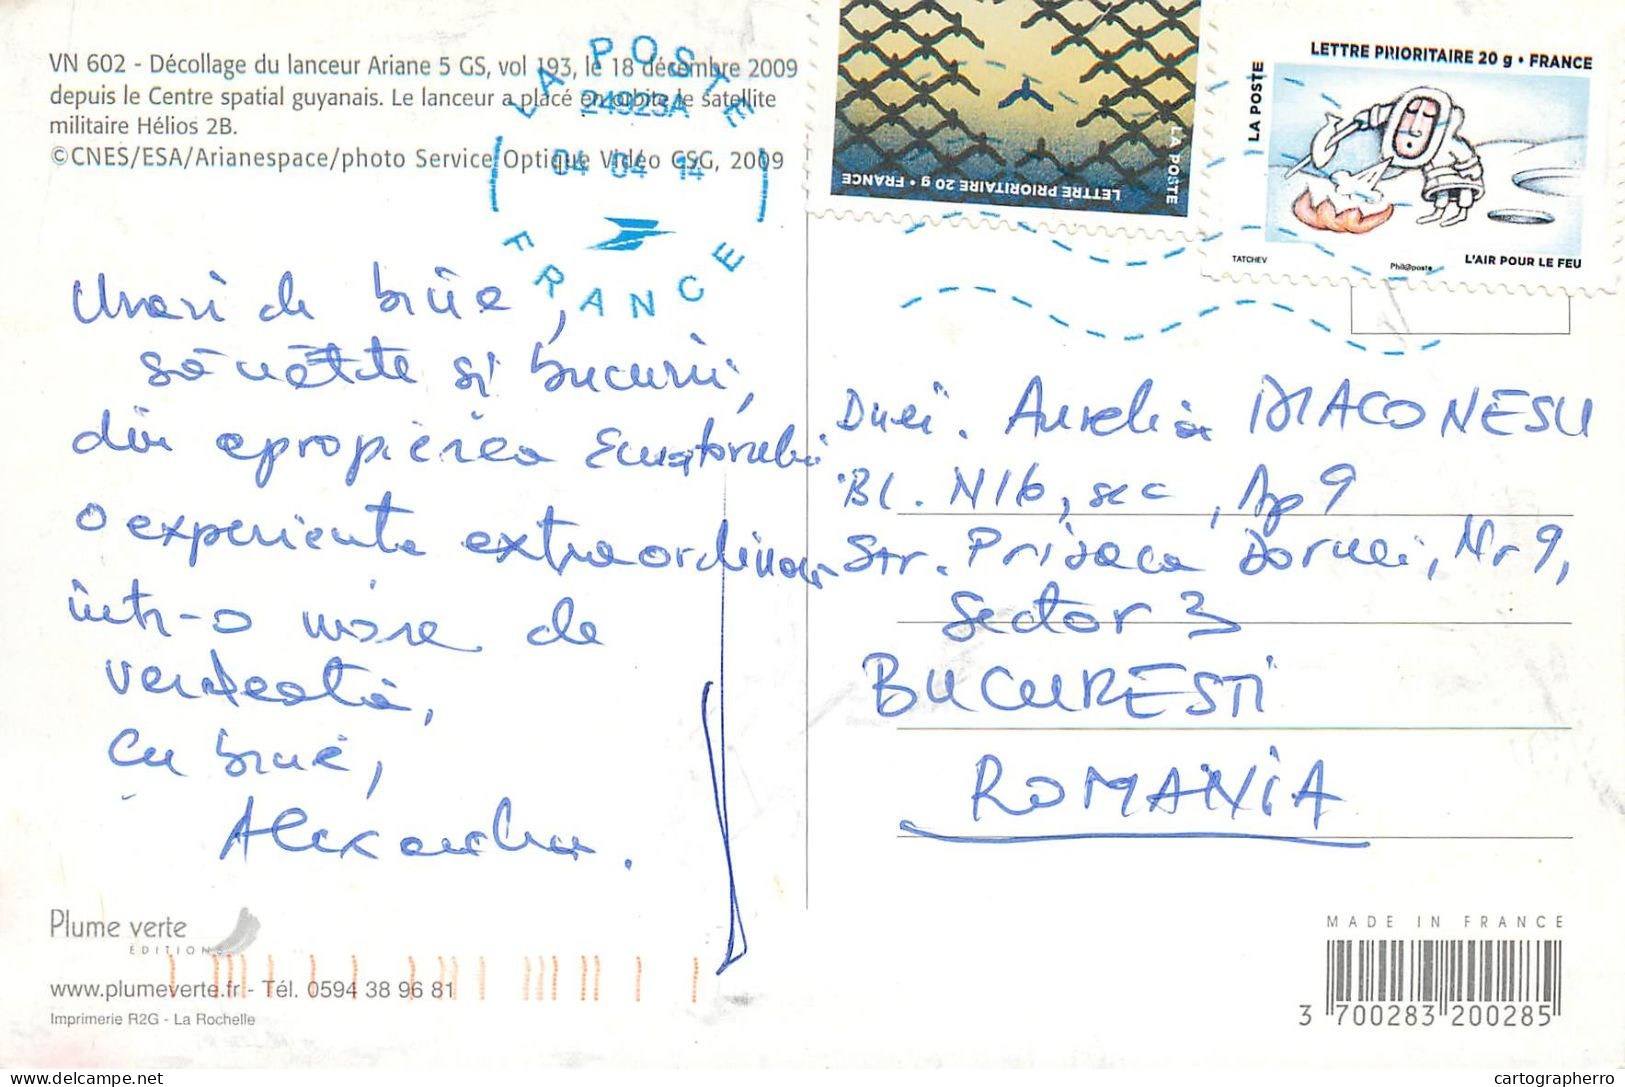 VN 602 - Décollage du lanceur Ariane 5 GS, vol 193, le 18 décembre 2009
depuis le Centre spatial guyanais. Le lanceur a placé en orbite le satellite
militaire Hélios 2B.
©CNES/ESA/Arianespace/photo Service Optique Vidéo CSG, 2009
LA POSTE
24923A
04 04 14
FRANCE
LETTRE PRIORITAIRE 20 g • FRANCE
LA POSTE
LETTRE PRIORITAIRE 20 g • FRANCE
LA POSTE
TATCHEV
Phil@poste
L'AIR POUR LE FEU
Urări de bine,
sănătate si bucurii,
din apropierea Ecuatorului
o experienta extraordinara
într-o mare de
verdeată,
Cu bine,
Alexandru.
Dnei. Aurelia DIACONESU
Bl. N16, sc , Ap 9
Str. Prisaca Dornei, Nr 9,
Sector 3
BUCURESTI
ROMANIA
Plume verte
ÉDITIONS
www.plumeverte.fr - Tél. 0594 38 96 81
Imprimerie R2G - La Rochelle
MADE IN FRANCE
3 700283 200285
delcampe.net
cartographerro